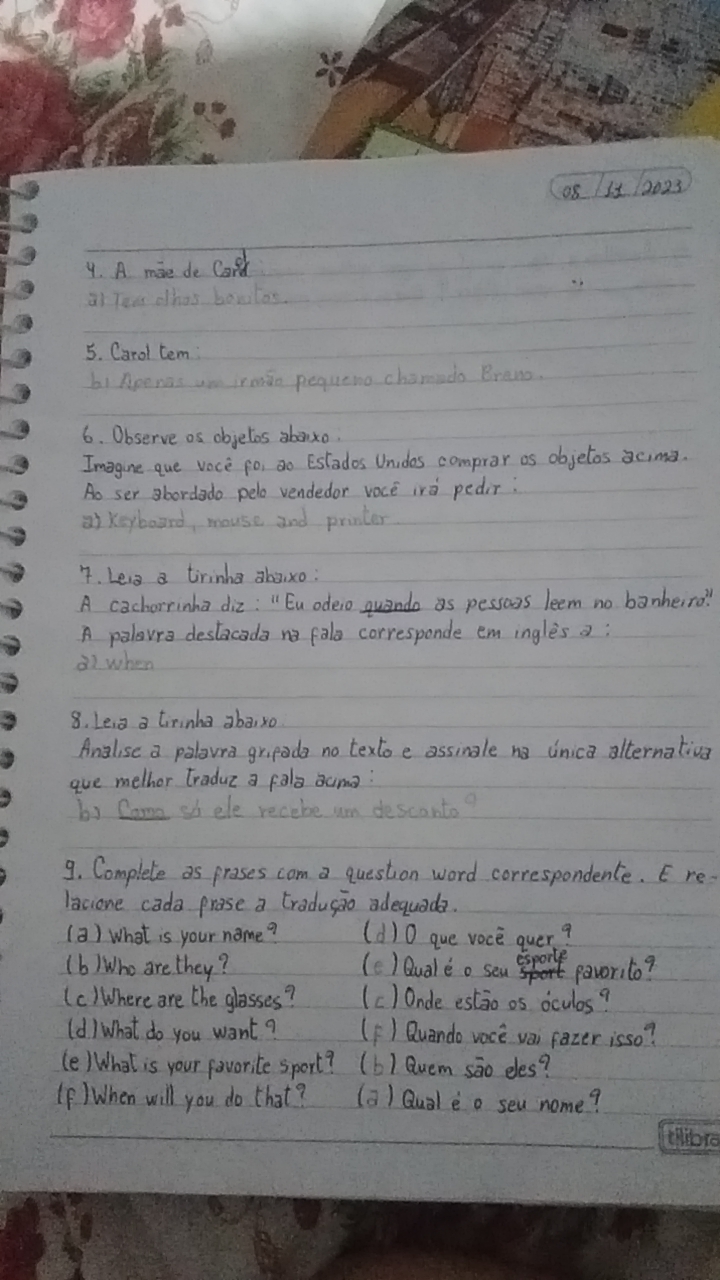 08/11/2023
4. A mãe de Carol:
a) Tem olhos bonitos.
5. Carol tem:
b) Apenas um irmão pequeno chamado Breno.
6. Observe os objetos abaixo.
Imagine que você foi ao Estados Unidos comprar os objetos acima.
Ao ser abordado pelo vendedor você irá pedir:
a) Keyboard, mouse and printer.
7. Leia a tirinha abaixo:
A cachorrinha diz: "Eu odeio quando as pessoas leem no banheiro."
A palavra destacada na fala corresponde em inglês a:
a) when
8. Leia a tirinha abaixo.
Analise a palavra grifada no texto e assinale na única alternativa
que melhor traduz a fala acima:
b) Como só ele recebe um desconto?
9. Complete as frases com a question word correspondente. E re-
lacione cada frase a tradução adequada.
(a) What is your name? (d) O que você quer?
(b) Who are they? (e) Qual é o seu esporte favorito?
(c) Where are the glasses? (c) Onde estão os óculos?
(d) What do you want? (f) Quando você vai fazer isso?
(e) What is your favorite sport? (b) Quem são eles?
(f) When will you do that? (a) Qual é o seu nome?
tilibra